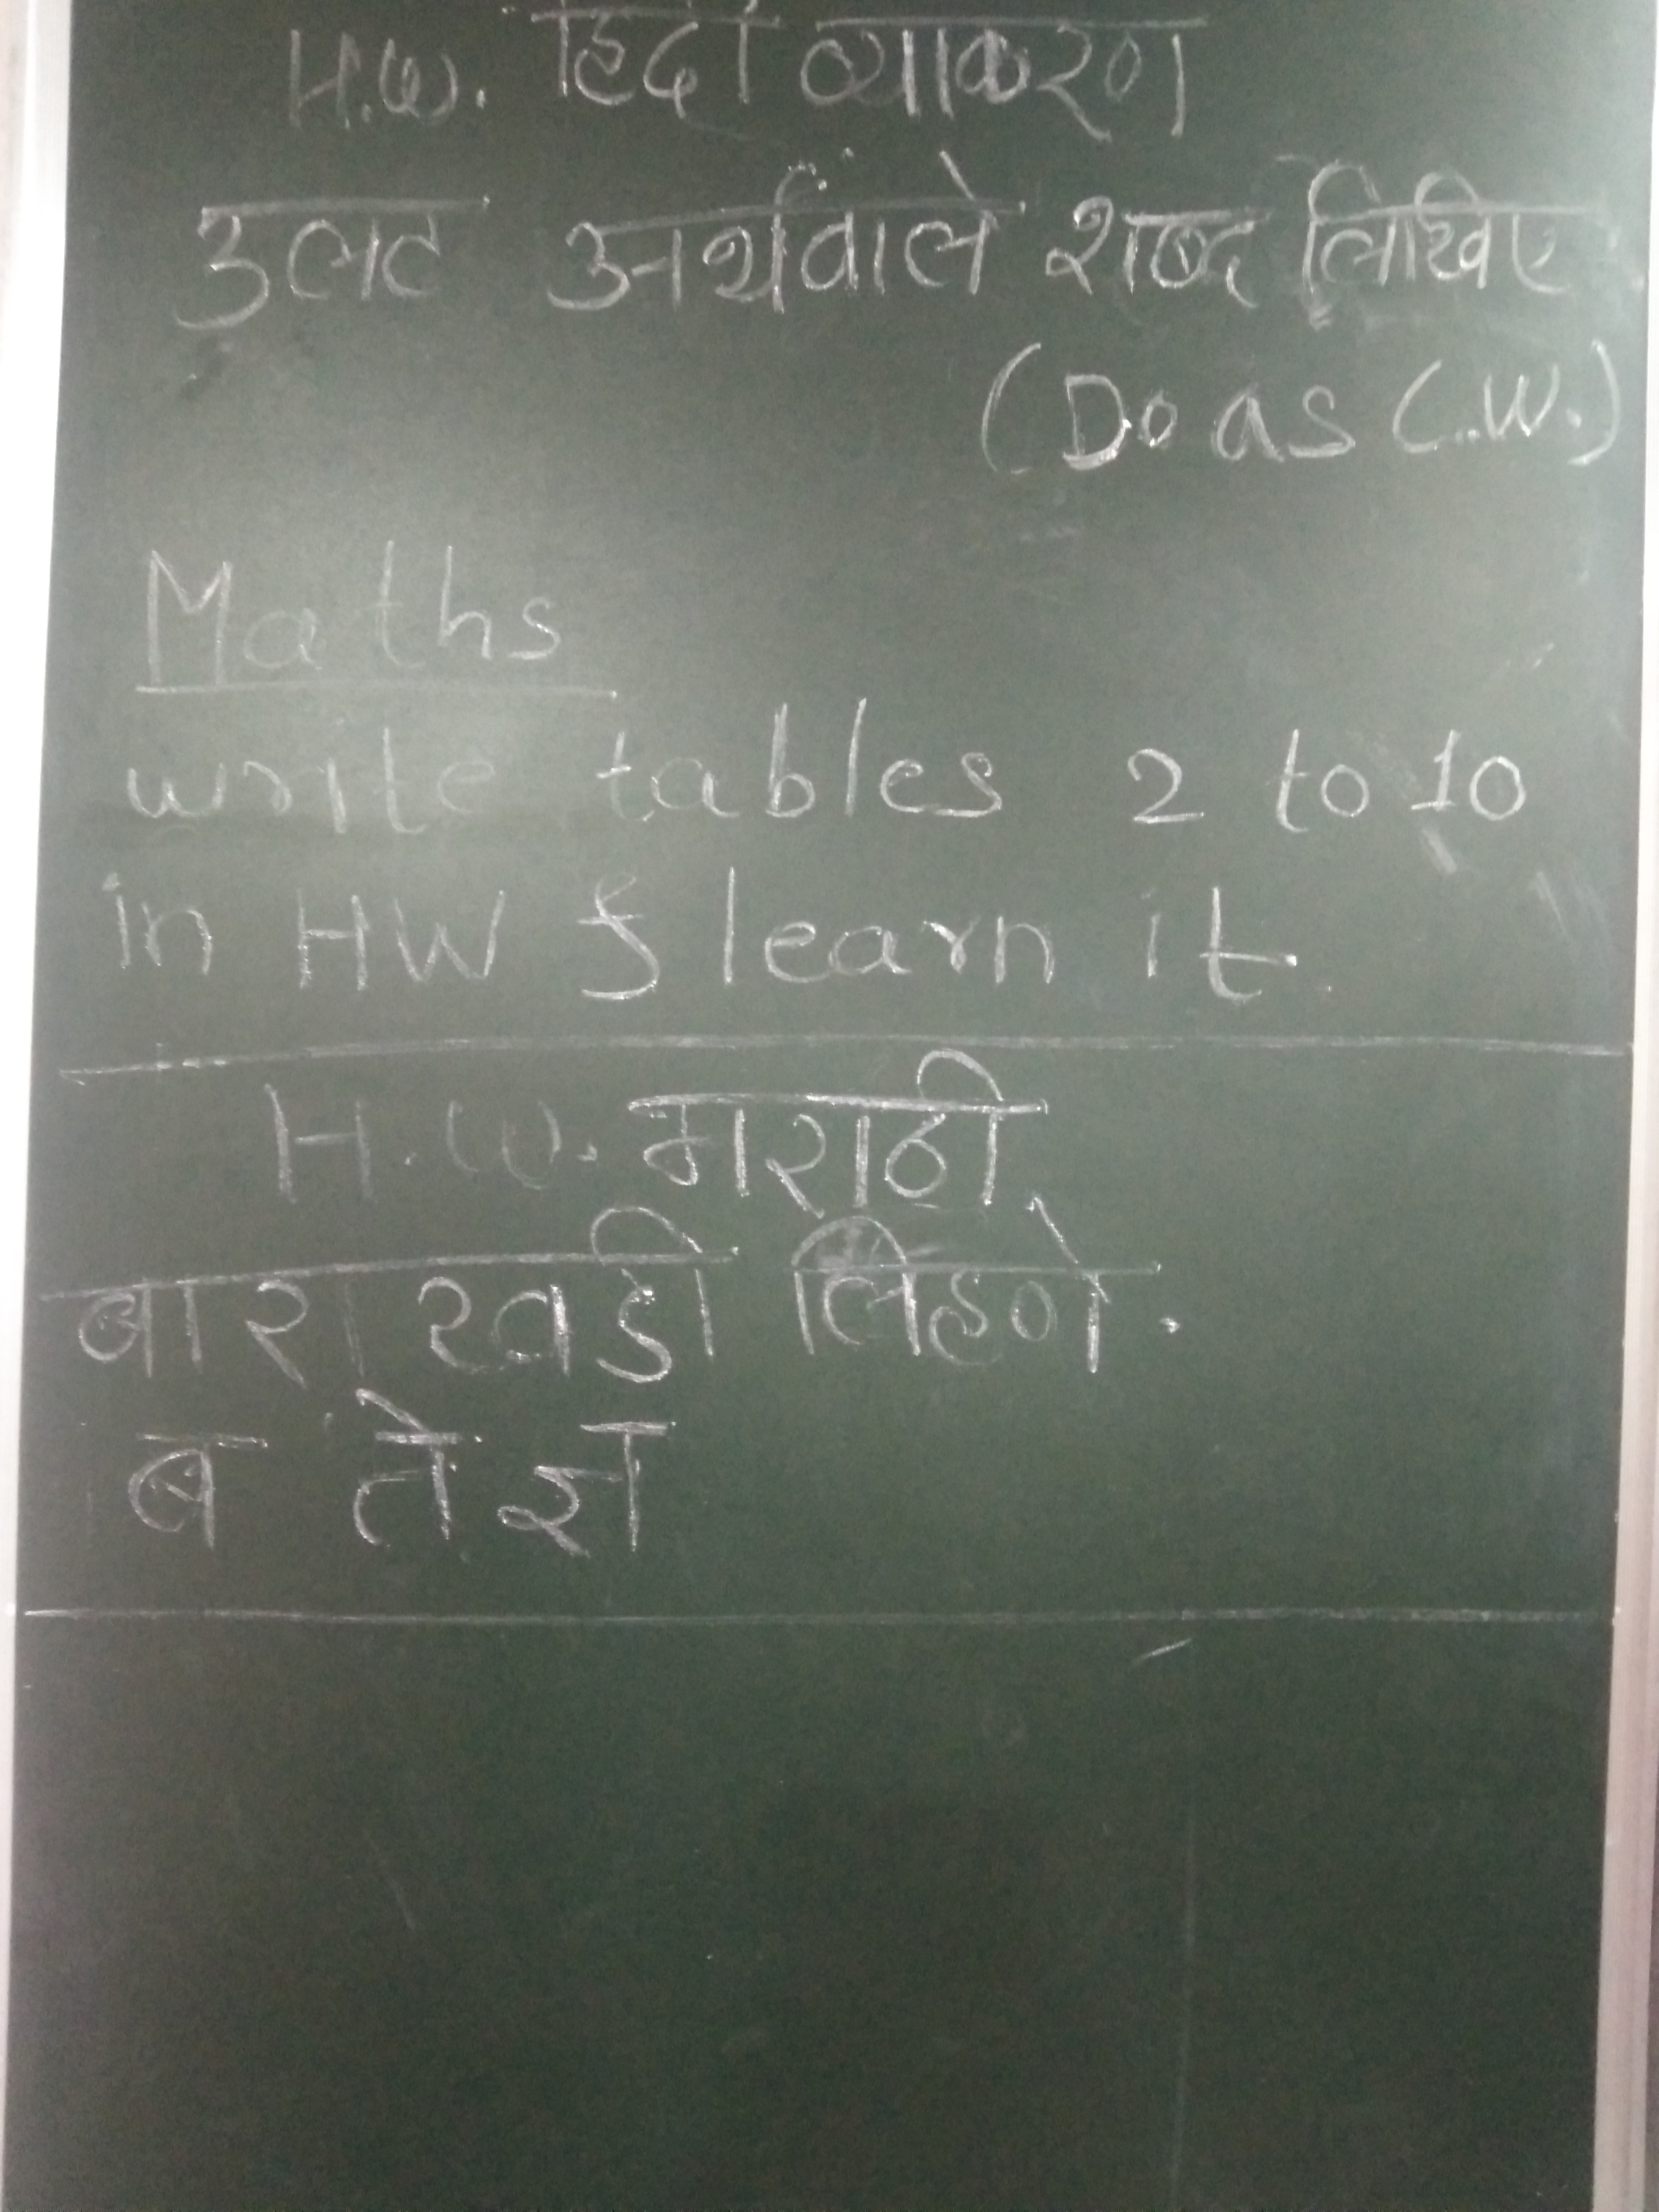 H.W. हिंदी व्याकरण
उलट अर्थवाले शब्द लिखिए
(Do as C.W.)
Maths
write tables 2 to 10
in HW & learn it.
H.W. मराठी
बाराखडी लिहणे.
ब ते ज्ञ